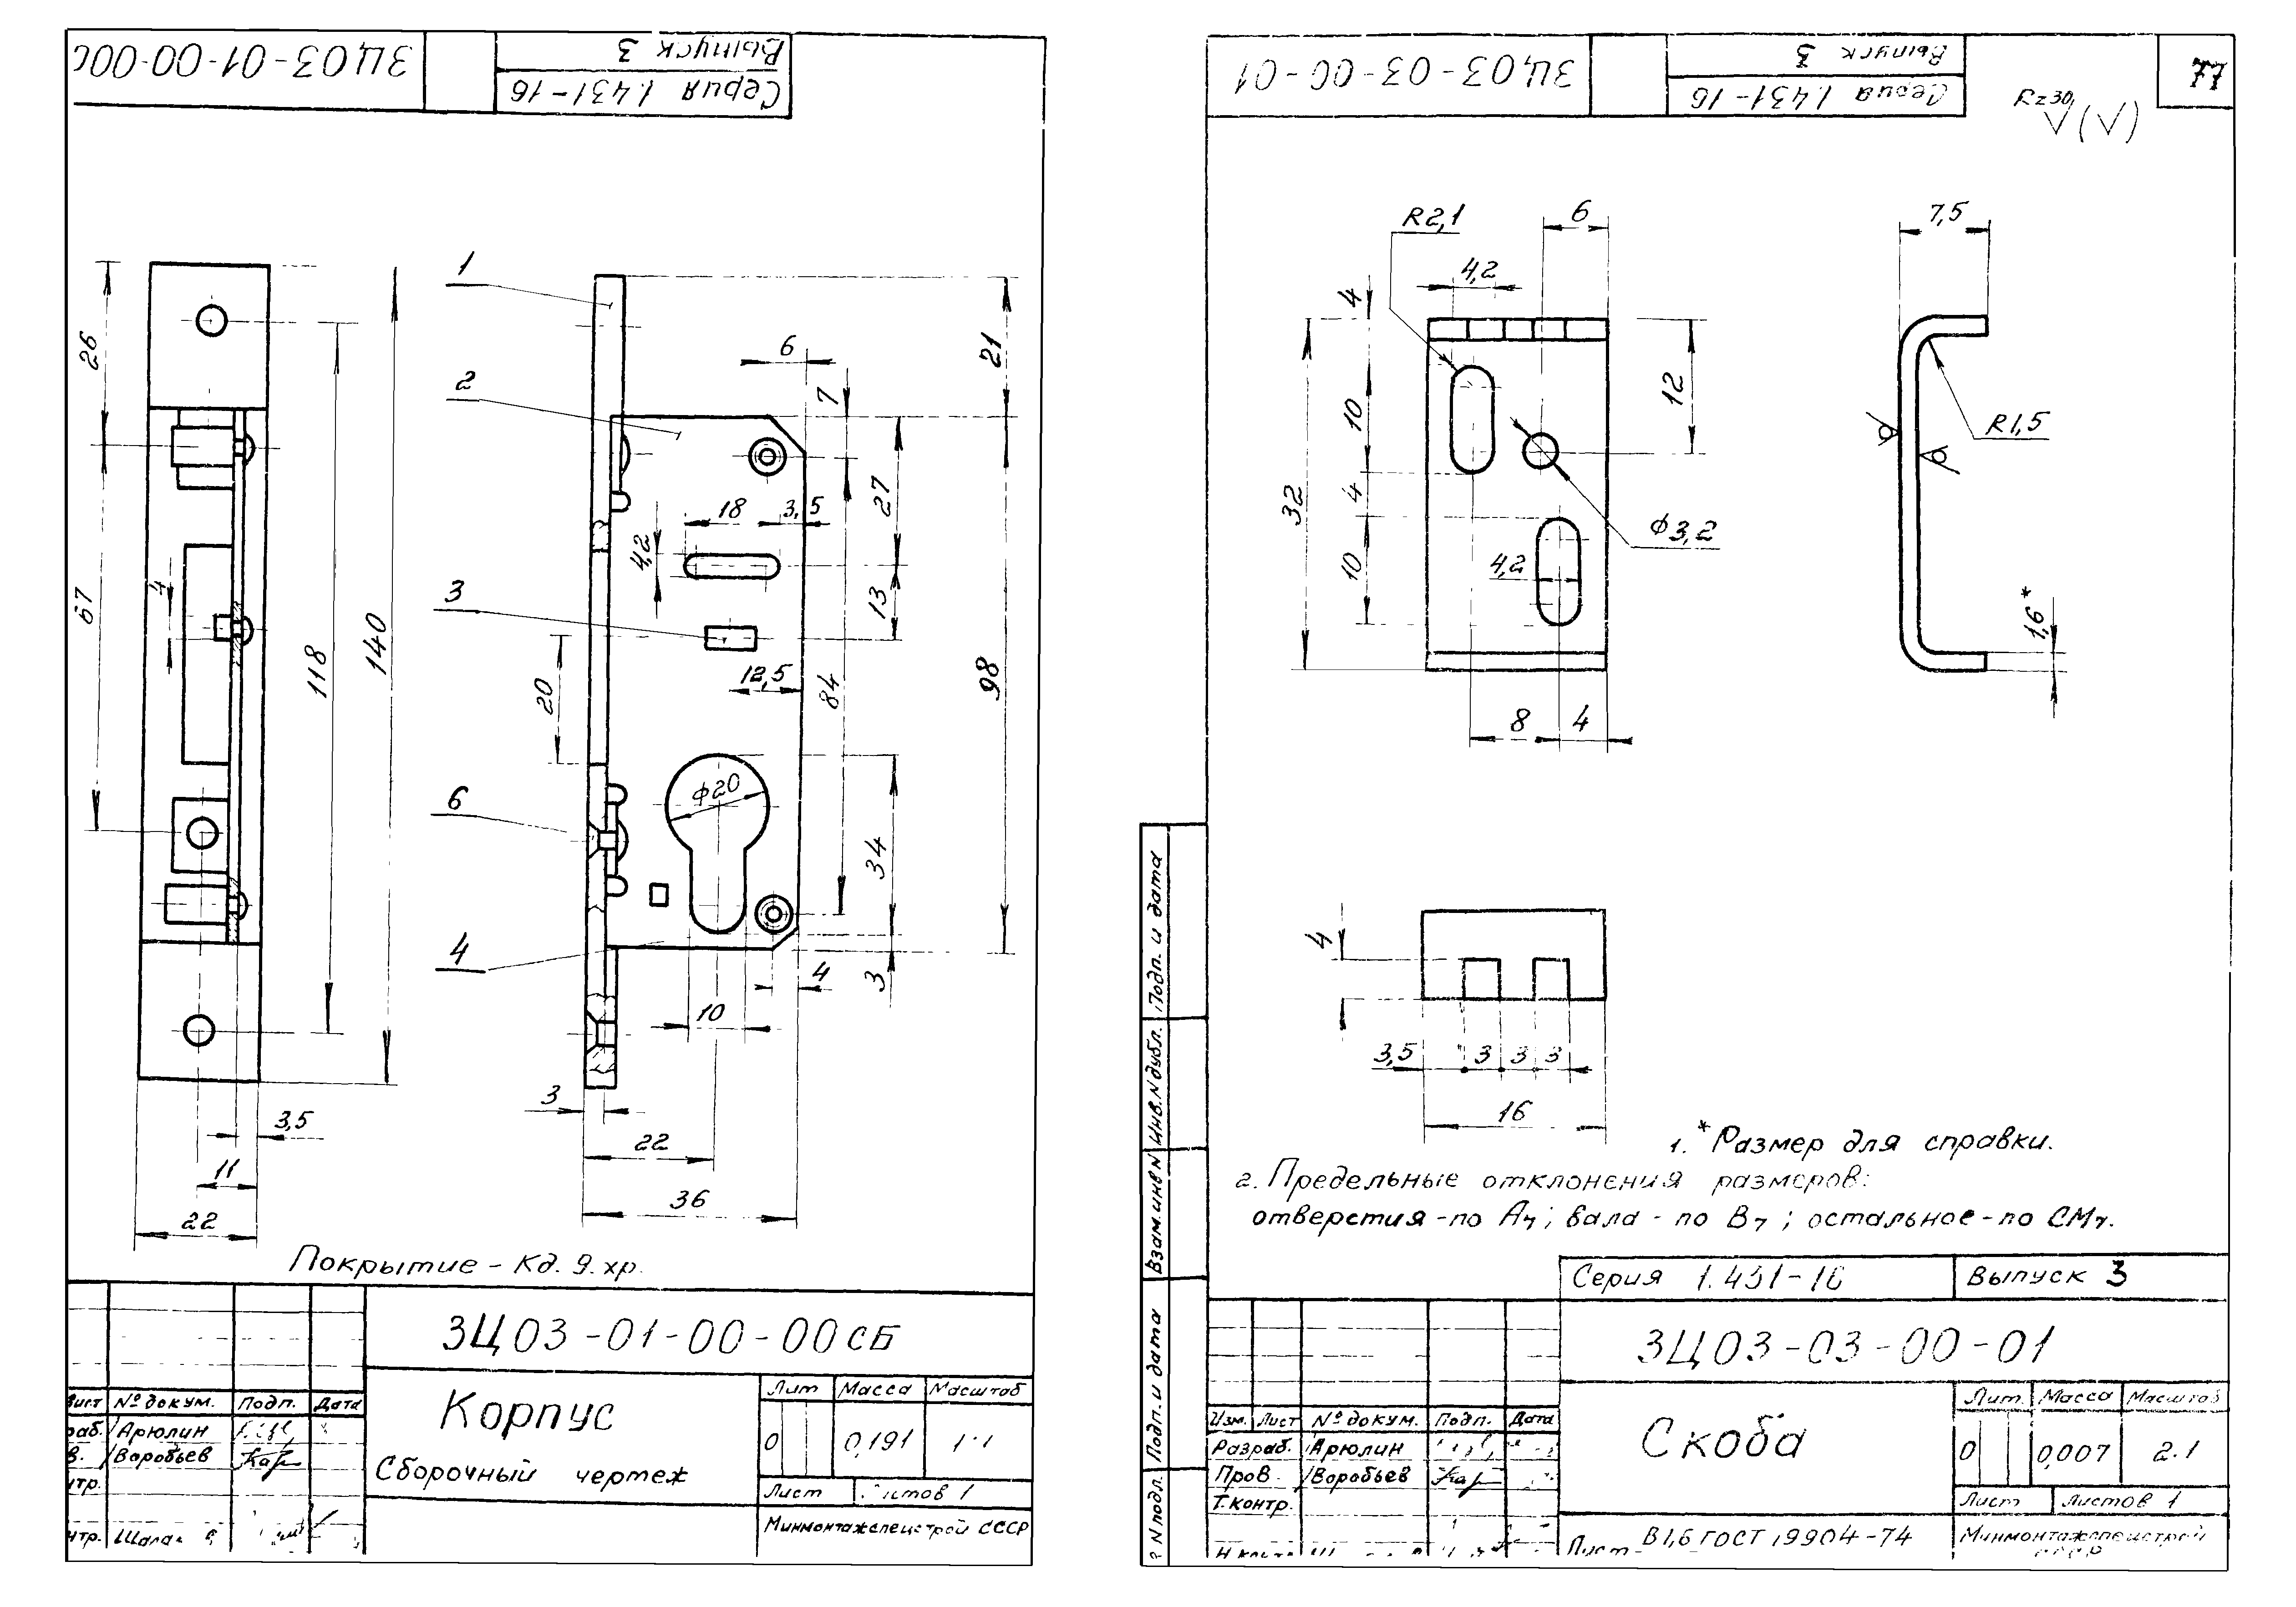 ЗЦ03-01-00-00С
Выпуск 3
Серия 1.431-16
26
67
4
118
140
3,5
11
22
1
2
3
6
4
6
7
21
18
3,5
4,2
27
13
12,5
20
84
98
ϕ20
34
3
4
10
3
22
36
Покрытие - Кд. 9. хр.
ЗЦ03-01-00-00СБ
Корпус
Сборочный чертеж
Лит Масса Масштаб
0 0,191 1:1
Лист Листов 1
Минмонтажспецстрой СССР
Лист № докум. Подп. Дата
раб. Арюлин
в. Воробьев
нтр.
нтр.
ЗЦ03-03-00-01
Выпуск 3
Серия 1.431-16
77
Rz30
R2,1
6
7,5
4,2
4
10
12
32
4
ϕ3,2
10
4,2
R1,5
1,6*
8 4
4
3,5 3 3 3
16
1. *Размер для справки.
2. Предельные отклонения размеров:
отверстия - по А7; вала - по В7; остальное - по СМ7.
Серия 1.431-16 Выпуск 3
ЗЦ03-03-00-01
Скоба
Лит. Масса Масштаб
0 0,007 2:1
Лист Листов 1
Лист В1,6 ГОСТ 19904-74
Минмонтажспецстрой
СССР
Изм. Лист № докум. Подп. Дата
Разраб. Арюлин
Пров. Воробьев
Т.контр.
Подп. и дата
Инв.N дубл.
Взам.инв N
Подп. и дата
N подл.